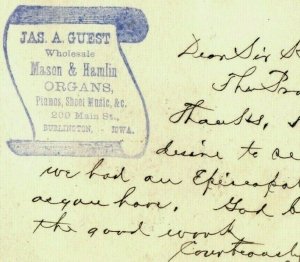 JAS. A. GUEST
Wholesale
Mason & Hamlin
ORGANS,
Pianos, Sheet Music, &c.
209 Main St.,
BURLINGTON, - IOWA.
Dear Sir
The
Thanks,
desire to
we had an Episcopal
as you have. God
the good work
Courteously